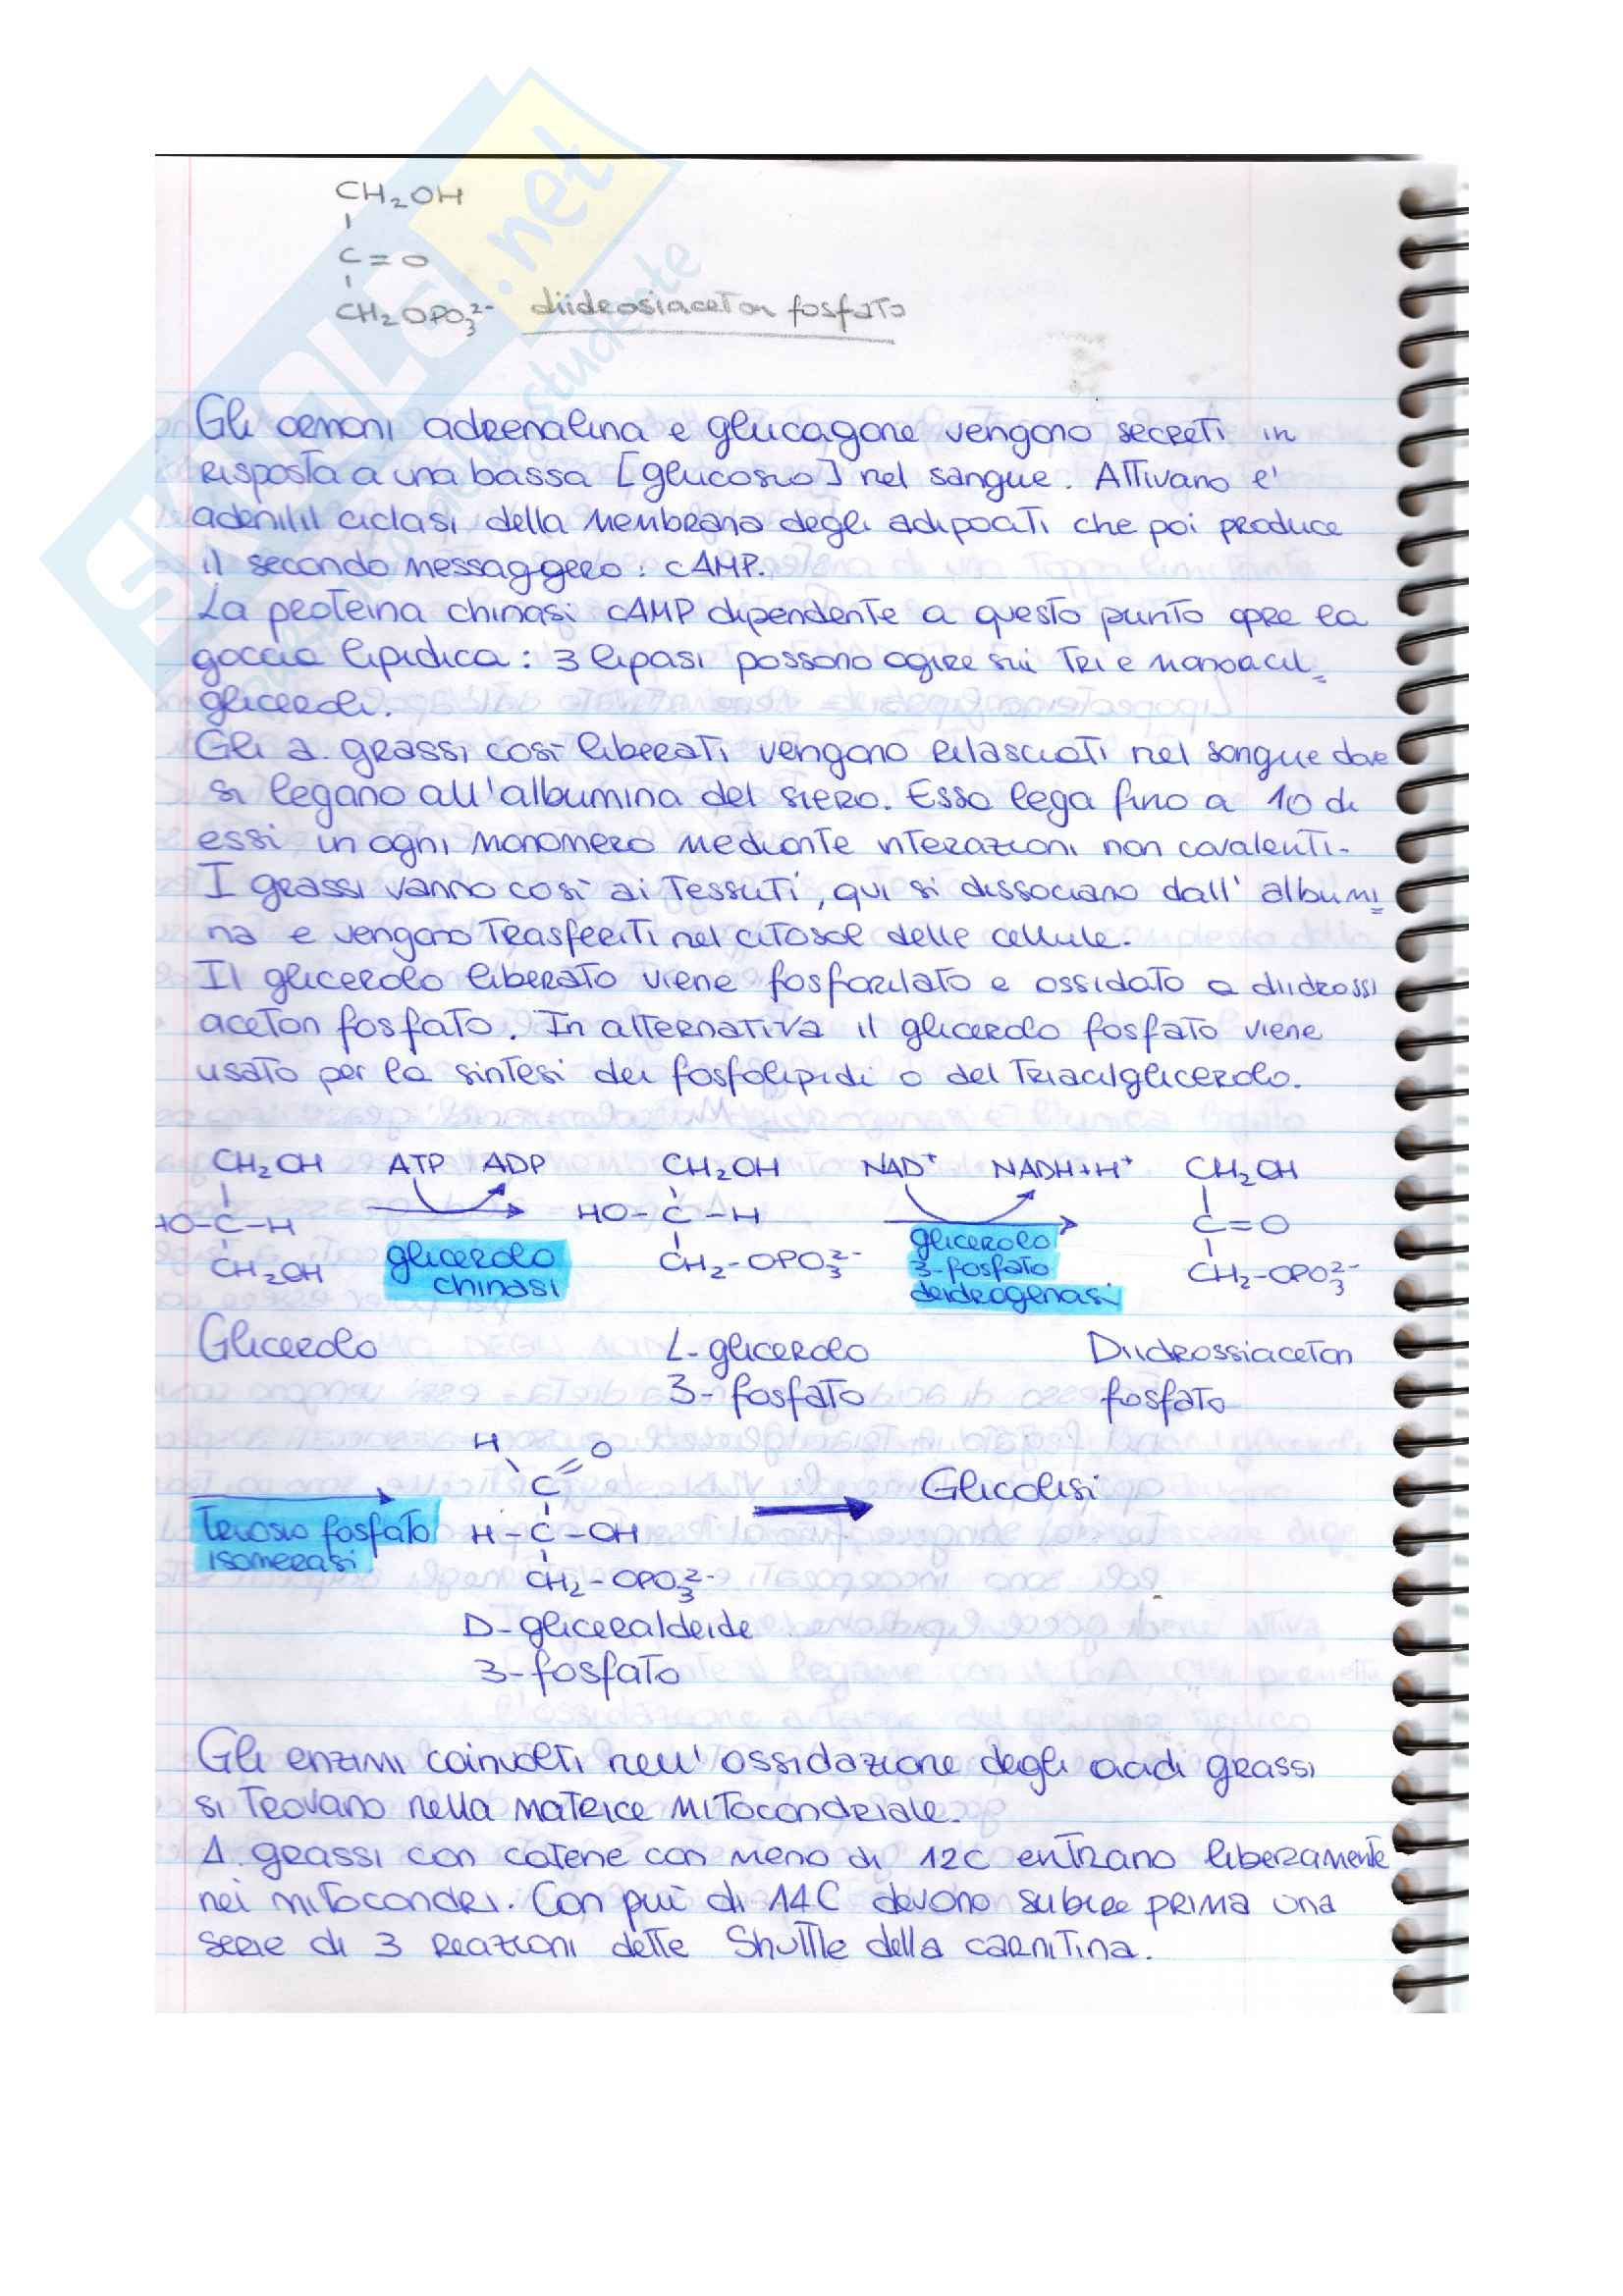 CH₂OH
C=O
CH₂OPO₃²⁻ diidrosiaceton fosfato
Gli ormoni adrenalina e glucagone vengono secreti in
risposta a una bassa [glucosio] nel sangue. Attivano l'
adenilil ciclasi della membrana degli adipociti che poi produce
il secondo messaggero: cAMP.
La proteina chinasi cAMP dipendente a questo punto apre la
goccia lipidica: 3 lipasi possono agire sui tri e monoacil=
gliceroli.
Gli a. grassi così liberati vengono rilasciati nel sangue dove
si legano all'albumina del siero. Essa lega fino a 10 di
essi in ogni monomero mediante interazioni non covalenti.
I grassi vanno così ai tessuti, qui si dissociano dall'albumi=
na e vengono trasferiti nel citosol delle cellule.
Il glicerolo liberato viene fosforilato e ossidato a diidrossi
aceton fosfato. In alternativa il glicerolo fosfato viene
usato per la sintesi dei fosfolipidi o del triacilglicerolo.
CH₂OH ATP ADP CH₂OH NAD⁺ NADH+H⁺ CH₂OH
HO-C-H HO-C-H C=O
CH₂OH glicerolo CH₂-OPO₃²⁻ glicerolo CH₂-OPO₃²⁻
chinasi 3-fosfato
deidrogenasi
Glicerolo L-glicerolo Diidrossiaceton
3-fosfato fosfato
H O
C Glicolisi
trioso fosfato H-C-OH
isomerasi
CH₂-OPO₃²⁻
D-gliceraldeide
3-fosfato
Gli enzimi coinvolti nell'ossidazione degli acidi grassi
si trovano nella matrice mitocondriale.
A. grassi con catene con meno di 12C entrano liberamente
nei mitocondri. Con più di 14C devono subire prima una
serie di 3 reazioni dette Shuttle della carnitina.
SKUOLA.net